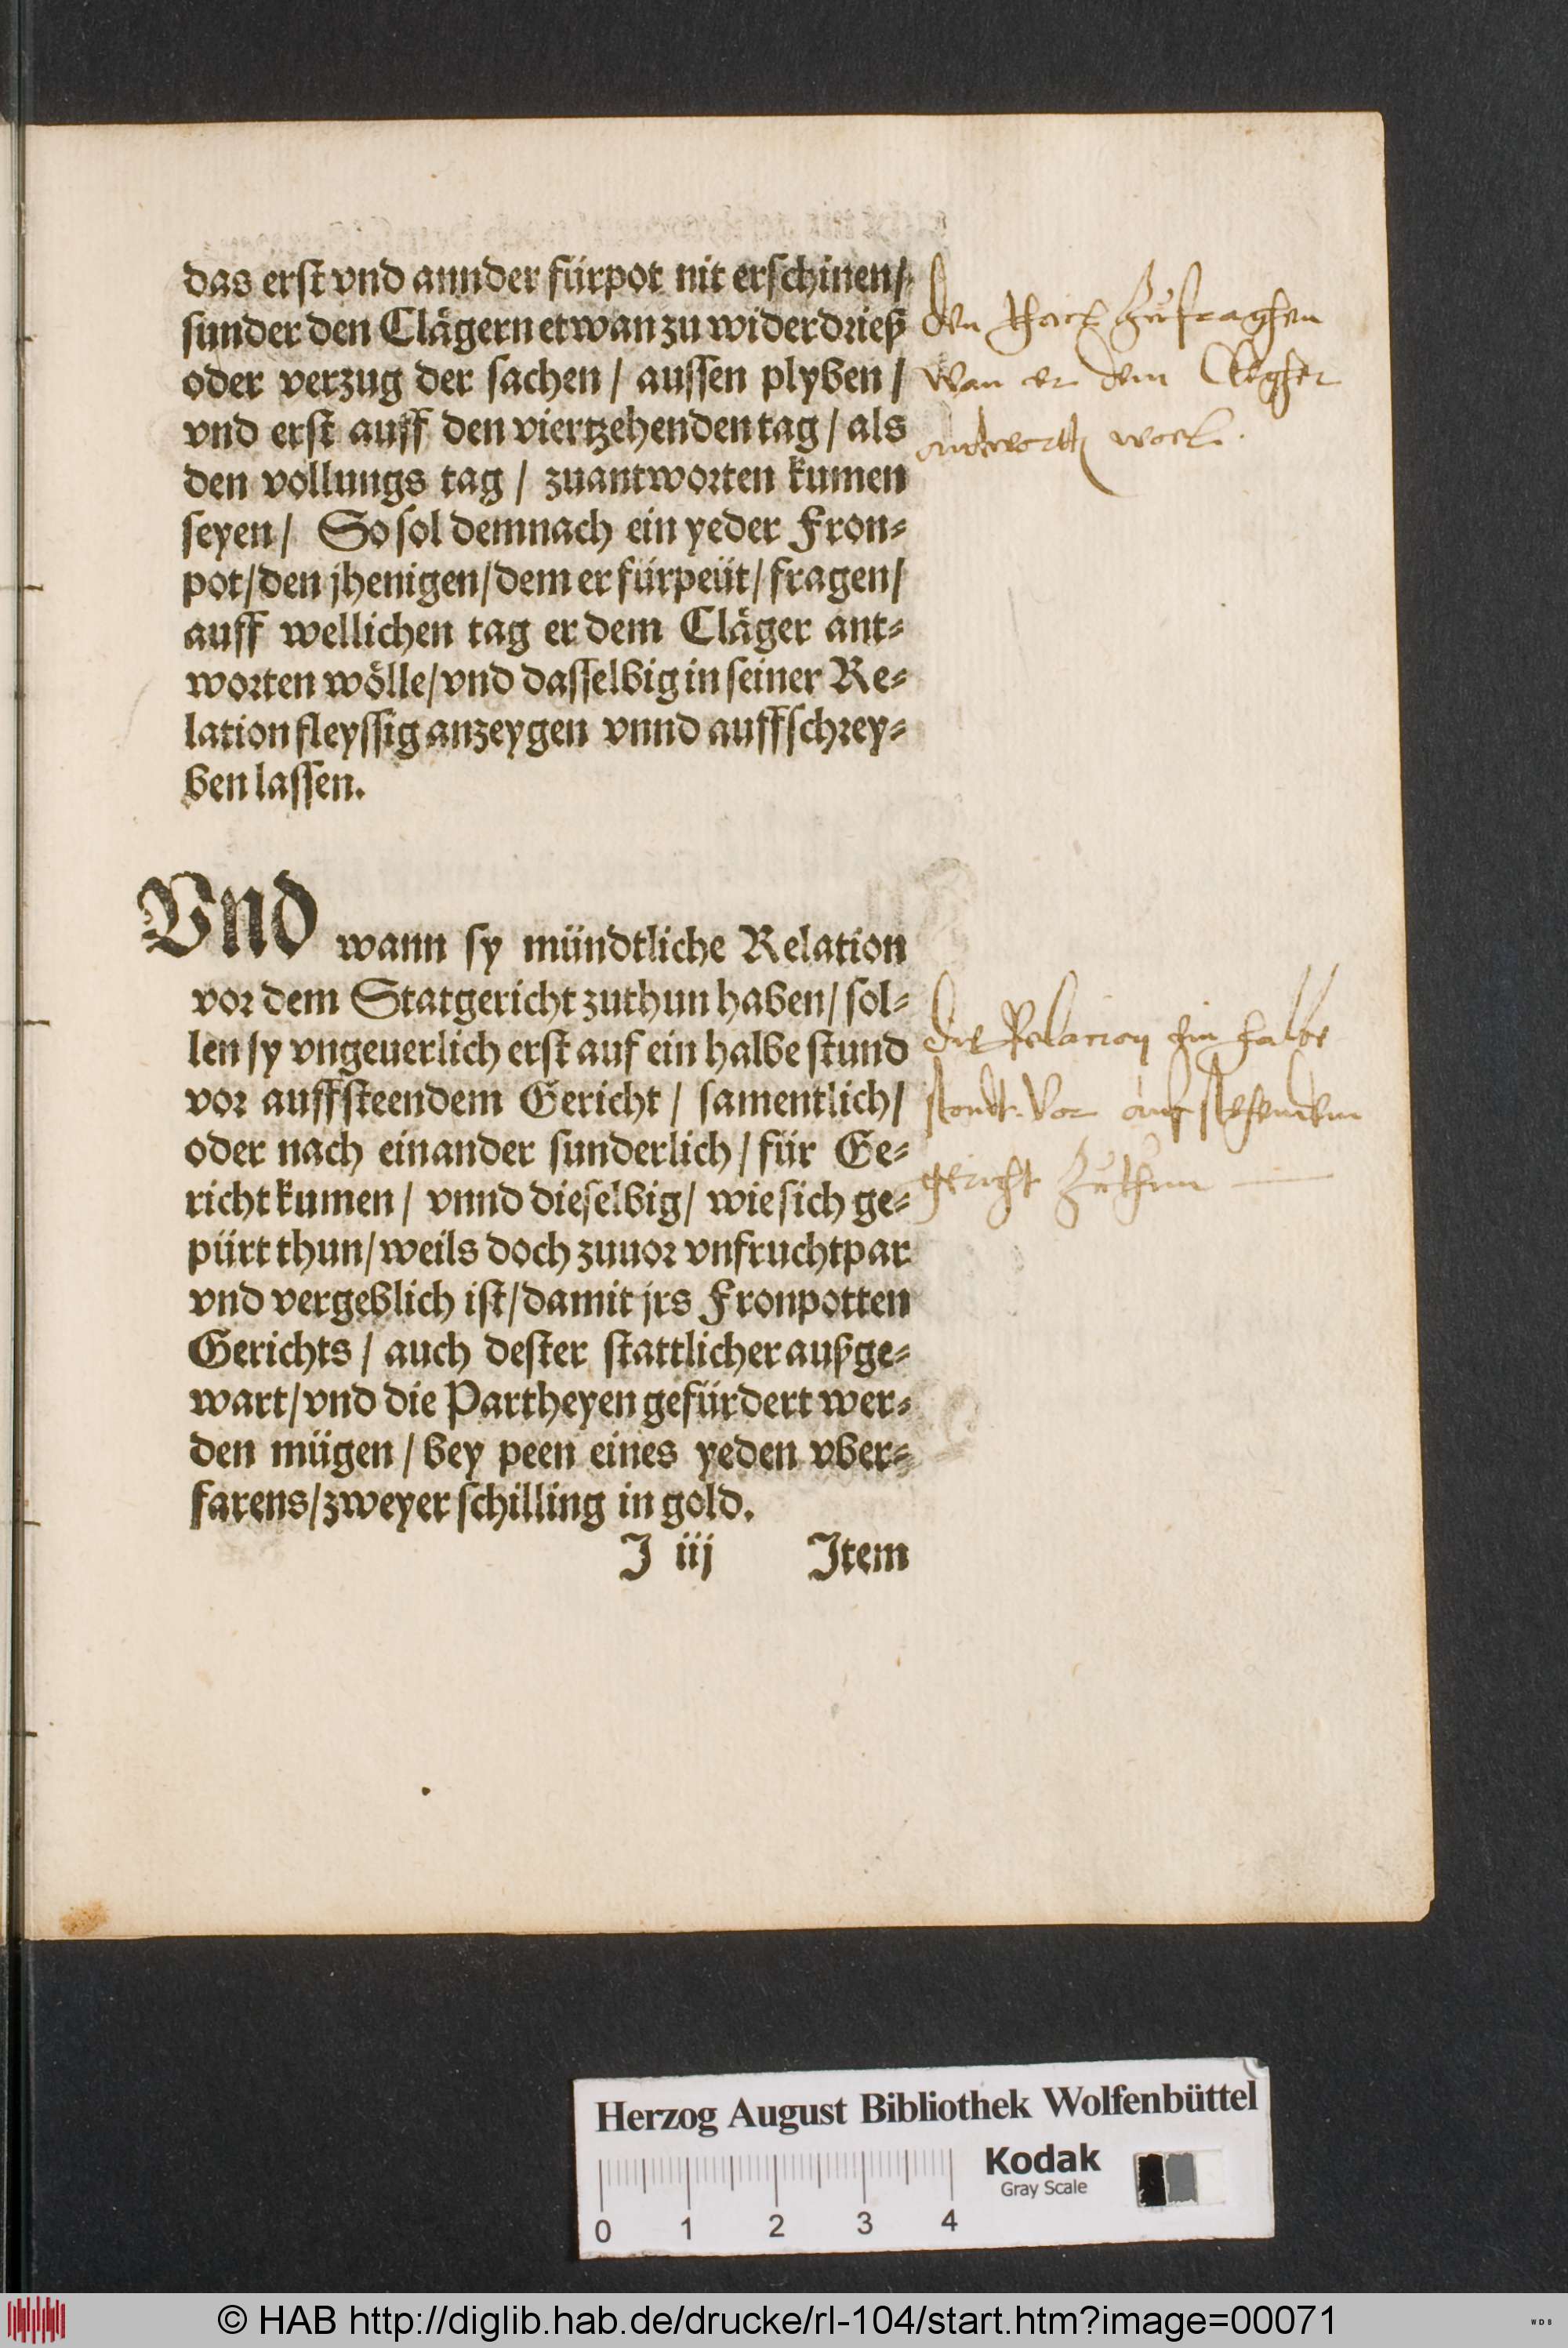 das erst vnd annder fürpot nit erschinen /
sunder den Clägern etwan zu widerdrieß
oder verzug der sachen / aussen plyben /
vnd erst auff den viertzehenden tag / als
den vollungs tag / zuantworten kumen
seyen / So sol demnach ein yeder Fron=
pot / den jhenigen / dem er fürpeüt / fragen /
auff wellichen tag er dem Cläger ant=
worten wölle / vnd dasselbig in seiner Re=
lation fleyssig anzeygen vnnd auffschrey=
ben lassen.
den zufraghen
wan er dem Clegher
andtwortth woel.
Vnd wann sy mündtliche Relation
vor dem Statgericht zuthun haben / sol=
len sy vngeuerlich erst auf ein halbe stund
vor auffsteendem Gericht / samentlich /
oder nach einander sunderlich / für Ge=
richt kumen / vnnd dieselbig / wie sich ge=
pürt thun / weils doch zuuor vnfruchtpar
vnd vergeblich ist / damit jrs Fronpotten
Gerichts / auch dester stattlicher außge=
wart / vnd die Partheyen gefürdert wer=
den mügen / bey peen eines yeden vber=
farens / zweyer schilling in gold.
die Relacion ein halbe
stondt vor aufstehendem
gericht zuthun
J iij Item
Herzog August Bibliothek Wolfenbüttel
Kodak
Gray Scale
0 1 2 3 4
© HAB http://diglib.hab.de/drucke/rl-104/start.htm?image=00071
WDB